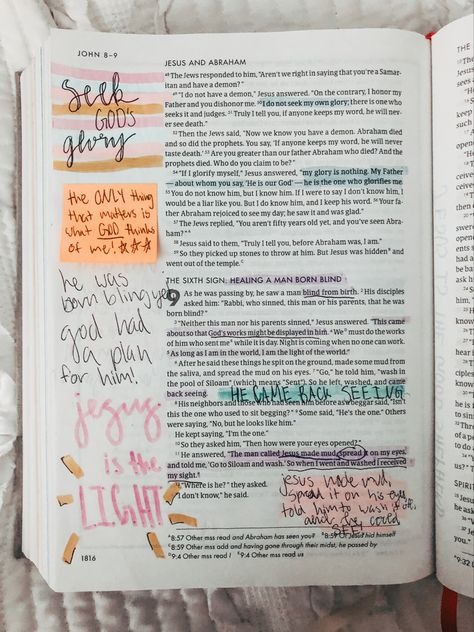 JOHN 8–9
Seek
GOD'S
glory
the ONLY thing
that matters is
what GOD thinks
of me!
he was
born bling ye
god had
a plan
for him!
jesus
is the
LIGHT
1816
JESUS AND ABRAHAM
48 The Jews responded to him, "Aren't we right in saying that you're a Samar-
itan and have a demon?"
49 "I do not have a demon," Jesus answered. "On the contrary, I honor my
Father and you dishonor me. 50 I do not seek my own glory; there is one who
seeks it and judges. 51 Truly I tell you, if anyone keeps my word, he will nev-
er see death."
52 Then the Jews said, "Now we know you have a demon. Abraham died
and so did the prophets. You say, 'If anyone keeps my word, he will never
taste death.' 53 Are you greater than our father Abraham who died? And the
prophets died. Who do you claim to be?"
54 "If I glorify myself," Jesus answered, "my glory is nothing. My Father
— about whom you say, 'He is our God' — he is the one who glorifies me.
55 You do not know him, but I know him. If I were to say I don't know him, I
would be a liar like you. But I do know him, and I keep his word. 56 Your fa-
ther Abraham rejoiced to see my day; he saw it and was glad."
57 The Jews replied, "You aren't fifty years old yet, and you've seen Abra-
ham?"
58 Jesus said to them, "Truly I tell you, before Abraham was, I am."
59 So they picked up stones to throw at him. But Jesus was hidden and
went out of the temple.
THE SIXTH SIGN: HEALING A MAN BORN BLIND
9 As he was passing by, he saw a man blind from birth. 2 His disciples
asked him: "Rabbi, who sinned, this man or his parents, that he was
born blind?"
3 "Neither this man nor his parents sinned," Jesus answered. "This came
about so that God's works might be displayed in him. 4 We must do the works
of him who sent me while it is day. Night is coming when no one can work.
5 As long as I am in the world, I am the light of the world."
6 After he said these things he spit on the ground, made some mud from
the saliva, and spread the mud on his eyes. 7 "Go," he told him, "wash in
the pool of Siloam" (which means "Sent"). So he left, washed, and came
back seeing.
HE CAME BACK SEEING
8 His neighbors and those who had seen him before as a beggar said, "Isn't
this the one who used to sit begging?" 9 Some said, "He's the one." Others
were saying, "No, but he looks like him."
He kept saying, "I'm the one."
10 So they asked him, "Then how were your eyes opened?"
11 He answered, "The man called Jesus made mud, spread it on my eyes,
and told me, 'Go to Siloam and wash.' So when I went and washed I received
my sight."
12 "Where is he?" they asked.
"I don't know," he said.
jesus made mud,
spread it on his eyes
told him to wash it off,
and he could
SEE!
8:57 Other mss read and Abraham has seen you? 8:59 Jesus hid himself
8:59 Other mss add and having gone through their midst, he passed by
9:4 Other mss read I 9:4 Other mss read us
THE
SPIRIT
9:32